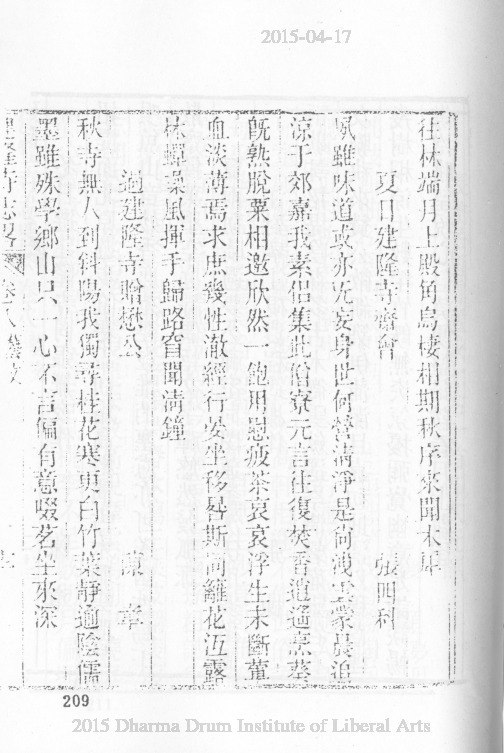 2015-04-17
往林端月上殿角烏棲相期秋序來聞木犀
夏日建隆寺齋會 張四科
夙雖味道或亦兄妄身世何營清淨是尚溲雲蒙晨追
涼于郊嘉我素侶集此僧寮元言往復焚香逍遙烹葵
旣熟脫粟相邀欣然一飽用慰疲茶哀哀浮生未斷葷
血淡薄焉求庶幾性澈經行晏坐移晷斯尚籬花泫露
林蟬噪風揮手歸路窅聞清鐘
過建隆寺贈懋公 章
秋寺無人到斜陽我獨尋桂花寒更白竹葉靜逾陰儒
墨雖殊學鄉山只一心不言偏有意啜茗坐來深
建隆寺志畧 卷八
209
2015 Dharma Drum Institute of Liberal Arts